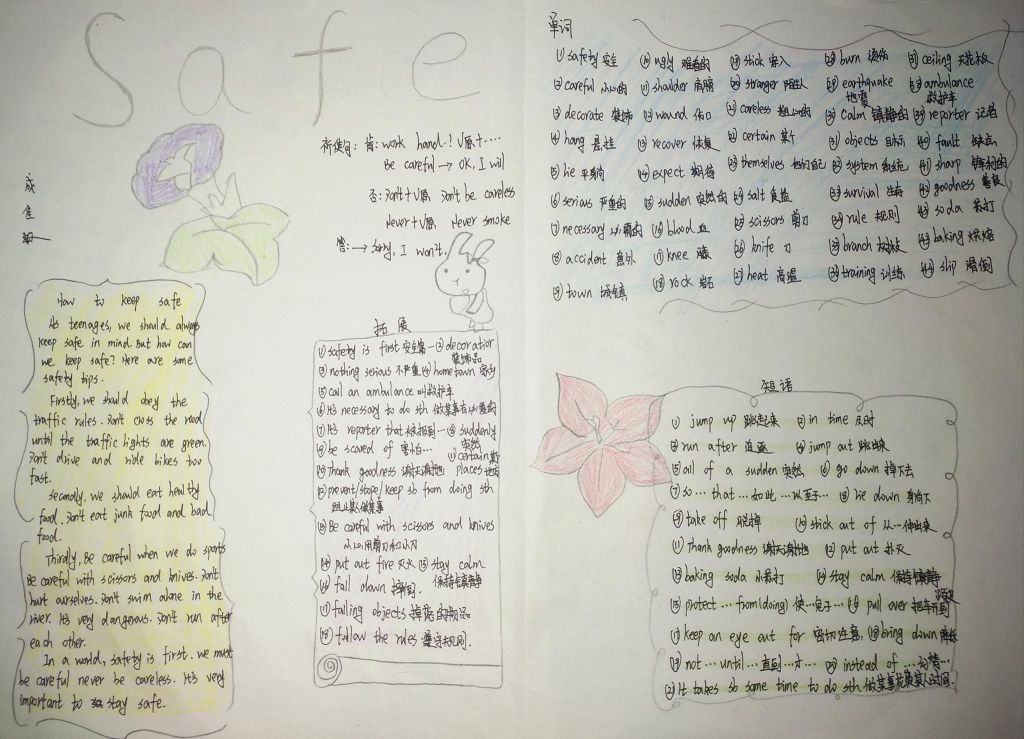 Safe
成佳
How to keep safe
As teenages, we should always
keep safe in mind. But how can
we keep safe? Here are some
safety tips.
Firstly, we should obey the
traffic rules. Don't cross the road
until the traffic lights are green.
Don't drive and ride bikes too
fast.
Secondly, we should eat healthy
food. Don't eat junk food and bad
food.
Thirdly, Be careful when we do sports
Be careful with scissors and knives. Don't
hurt ourselves. Don't swim alone in the
river. It's very dangerous. Don't run after
each other.
In a world, safety is first. we must
be careful never be careless. It's very
important to stay safe.
祈使句: 肯: work hard! V原+……
be careful → OK, I will
否: Don't+V原 Don't be careless
Never+V原 Never smoke
答: → sorry, I won't.
拓展
① safety is first 安全第一 ② decoration
装饰品
③ nothing serious 不严重 ④ hometown 家乡
⑤ call an ambulance 叫救护车
⑥ It's necessary to do sth 做某事有必要的
⑦ It's reporter that 被报到… ⑧ suddenly
突然
⑨ be scared of 害怕… ⑪ certain 某
⑩ Thank goodness 谢天谢地 places 地方
⑫ prevent/stope/keep sb from doing sth
阻止某人做某事
⑬ Be careful with scissors and knives
小心用剪刀和小刀
⑭ put out fire 灭火 ⑮ stay calm
保持镇静
⑯ fall down 摔倒
⑰ falling objects 掉落的物品
⑱ follow the rules 遵守规则.
单词
① safety 安全 ⑩ ugly 难看的 ⑲ stick 穿入 ㉘ burn 烫伤 ㊲ ceiling 天花板
② careful 小心的 ⑪ shoulder 肩膀 ⑳ stranger 陌生人 ㉙ earthquake 地震 ㊳ ambulance 救护车
③ decorate 装饰 ⑫ wound 伤口 ㉑ careless 粗心的 ㉚ calm 镇静的 ㊴ reporter 记者
④ hang 悬挂 ⑬ recover 恢复 ㉒ certain 某个 ㉛ objects 目标 ㊵ fault 缺点
⑤ lie 平躺 ⑭ expect 期待 ㉓ themselves 他们自己 ㉜ system 系统 ㊶ sharp 锋利的
⑥ serious 严重的 ⑮ sudden 突然的 ㉔ salt 食盐 ㉝ survival 生存 ㊷ goodness 善良
⑦ necessary 必需的 ⑯ blood 血 ㉕ scissors 剪刀 ㉞ rule 规则 soda 苏打
⑧ accident 意外 ⑰ knee 膝 ㉖ knife 刀 ㉟ branch 树枝 baking 烘焙
⑨ town 城镇 ⑱ rock 岩石 ㉗ heat 高温 ㊱ training 训练 slip 滑倒
短语
① jump up 跳起来 ② in time 及时
③ run after 追逐 ④ jump out 跳出来
⑤ all of a sudden 突然 ⑥ go down 掉下去
⑦ so … that … 如此…以至于… ⑧ lie down 躺下
⑨ take off 脱掉 ⑩ stick out of 从…伸出来
⑪ Thank goodness 谢天谢地 ⑫ put out 扑灭
⑬ baking soda 小苏打 ⑭ stay calm 保持镇静
⑮ protect … from(doing) 使…免于… ⑯ pull over 把车开到
⑰ keep an eye out for 密切注意, ⑱ bring down 降低
⑲ not … until … 直到…才… ⑳ instead of …代替…
㉑ It takes sb some time to do sth 做某事花费某人时间.